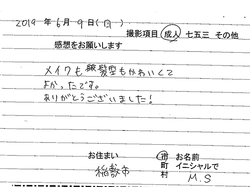 2019年 6月 9日(日)
撮影項目 成人 七五三 その他
感想をお願いします
メイクも髪型もかわいくて
よかったです。
ありがとうございました!
お住まい 市町村 お名前 イニシャルで
稲敷市 M.S